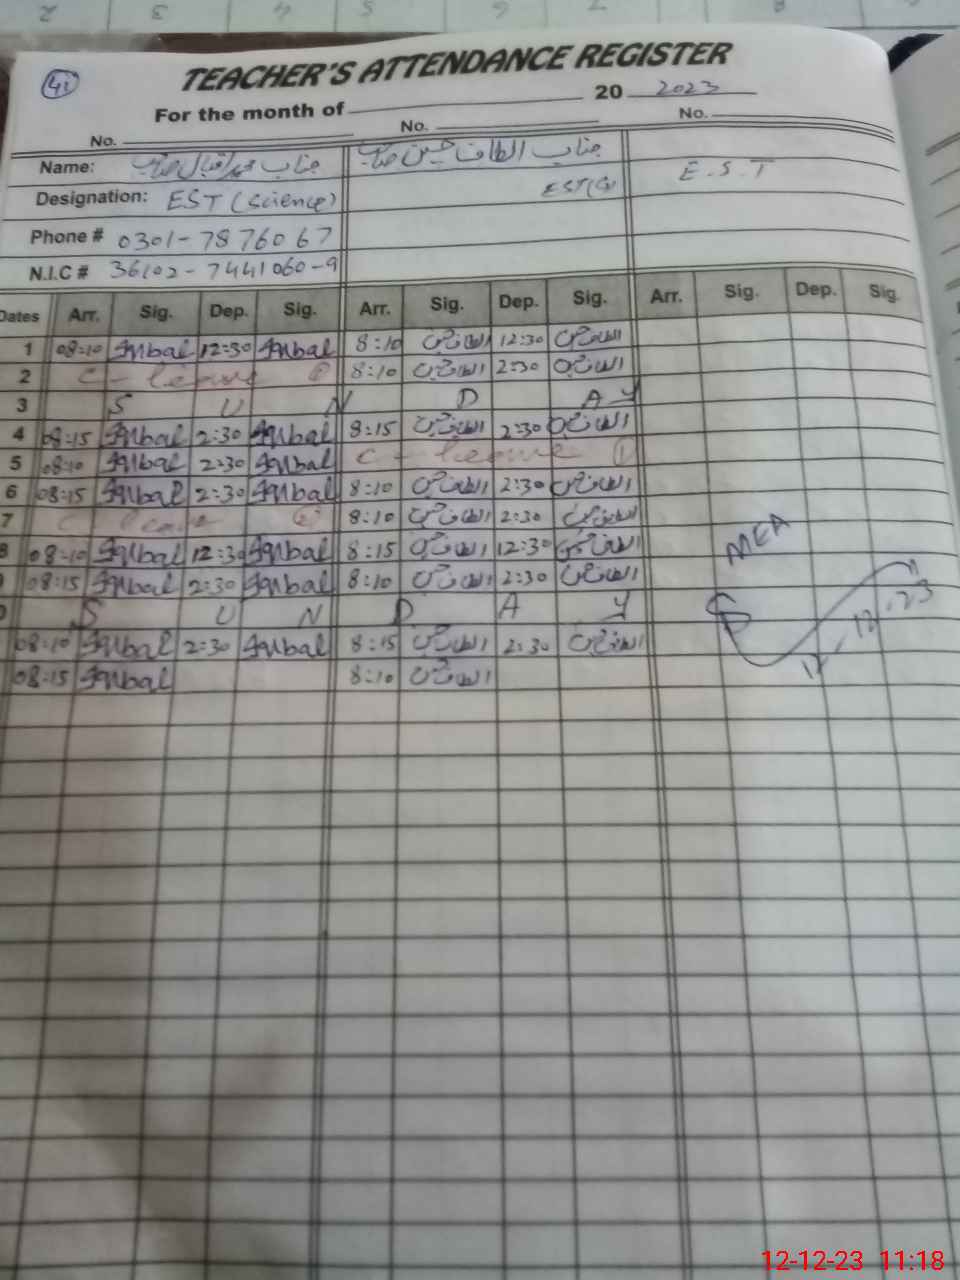 2 3 4 5 6 7 8
41
TEACHER'S ATTENDANCE REGISTER
For the month of 20 2023
No. No. No.
Name: جناب محمد اقبال صاحب جناب الطاف حسین صاحب
Designation: EST (Science) EST E.S.T
Phone # 0301-7876067
N.I.C # 36102-7441060-9
Dates Arr. Sig. Dep. Sig. Arr. Sig. Dep. Sig. Arr. Sig. Dep. Sig.
1 08:10 Iqbal 12:30 Iqbal 8:10 الطاف حسین 12:30 الطاف حسین
2 C-leave 1 8:10 الطاف حسین 2:30 الطاف حسین
3 S U N D A Y
4 08:15 Iqbal 2:30 Iqbal 8:15 الطاف حسین 2:30 الطاف حسین
5 08:10 Iqbal 2:30 Iqbal C-leave 1
6 08:15 Iqbal 2:30 Iqbal 8:10 الطاف حسین 2:30 الطاف حسین
7 C-leave 2 8:10 الطاف حسین 2:30 الطاف حسین
8 08:10 Iqbal 12:30 Iqbal 8:15 الطاف حسین 12:30 الطاف حسین
08:15 Iqbal 2:30 Iqbal 8:10 الطاف حسین 2:30 الطاف حسین
S U N D A Y
08:10 Iqbal 2:30 Iqbal 8:15 الطاف حسین 2:30 الطاف حسین
08:15 Iqbal 8:10 الطاف حسین
MEA
12.12.23
12-12-23 11:18